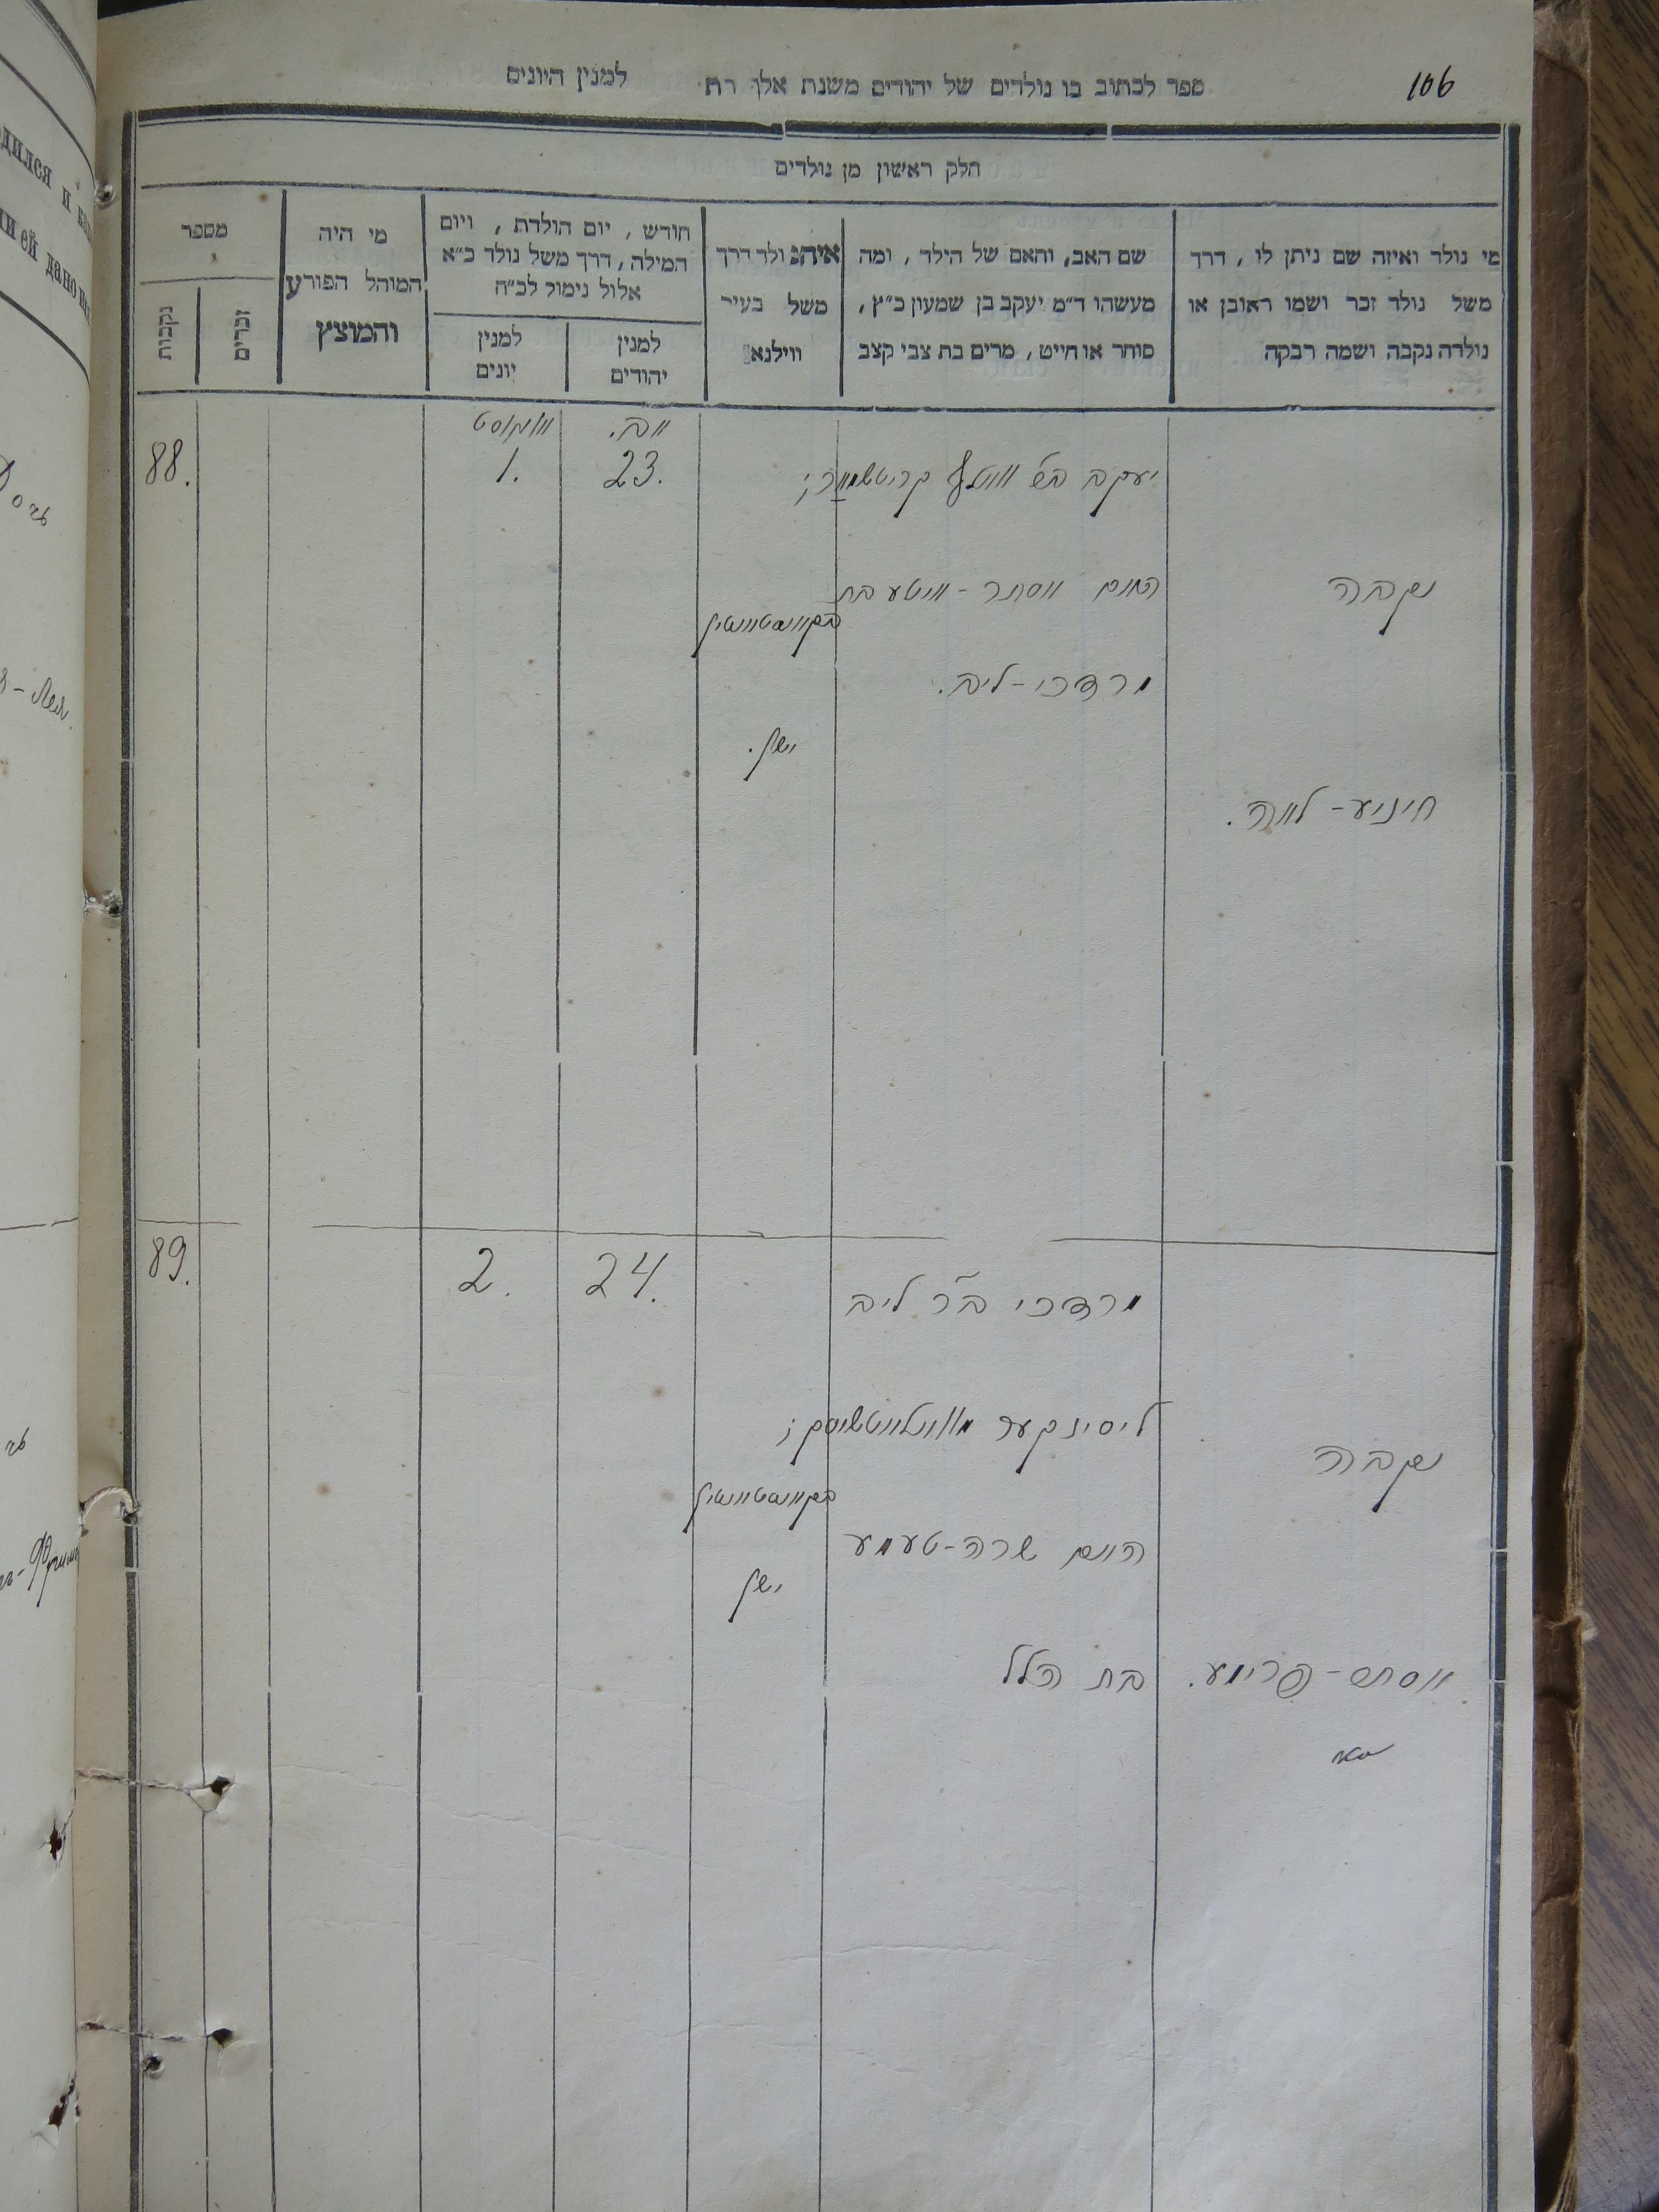 106
ספר לכתוב בו נולדים של יהודים משנת אלף רת׳ למנין היונים
חלק ראשון מן נולדים
מי נולד ואיזה שם ניתן לו, דרך
משל נולד זכר ושמו ראובן או
נולדה נקבה ושמה רבקה
שם האב, והאם של הילד, ומה
מעשהו ד״מ יעקב בן שמעון כ״ץ,
סוחר או חייט, מרים בת צבי קצב
איה נולד דרך
משל בעיר
ווילנא
חודש, יום הולדת, ויום
המילה, דרך משל נולד כ״א
אלול נימול לכ״ח
למנין
יהודים
למנין
יונים
מי היה
המוהל הפורע
והמוצץ
מספר
זכרים
נקבות
אב. אוגוסט
88. 1. 23.
יעקב
האם אסתר - איטע בת
נקבה
מרדכי - ליב.
ישן.
חיניע - לאה.
89. 2. 24.
מרדכי ב״ר ליב
ליסינקער
נקבה
האם שרה - טעמע
ישן
בת הלל
אסתר - פרומע.